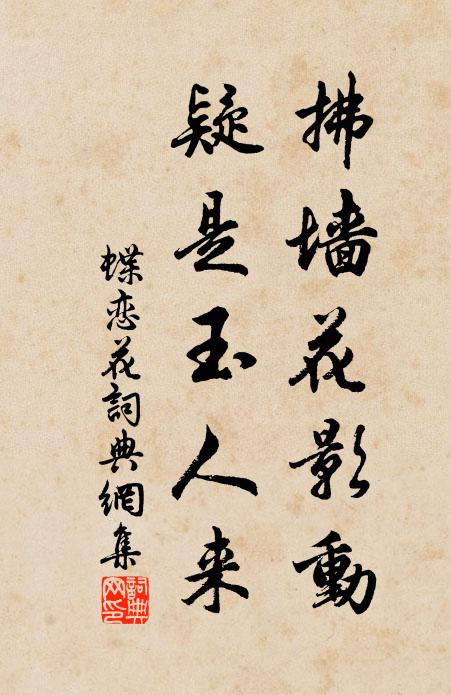 拂墙花影動
疑是玉人来
蝶恋花詞典網集
詞典
网印